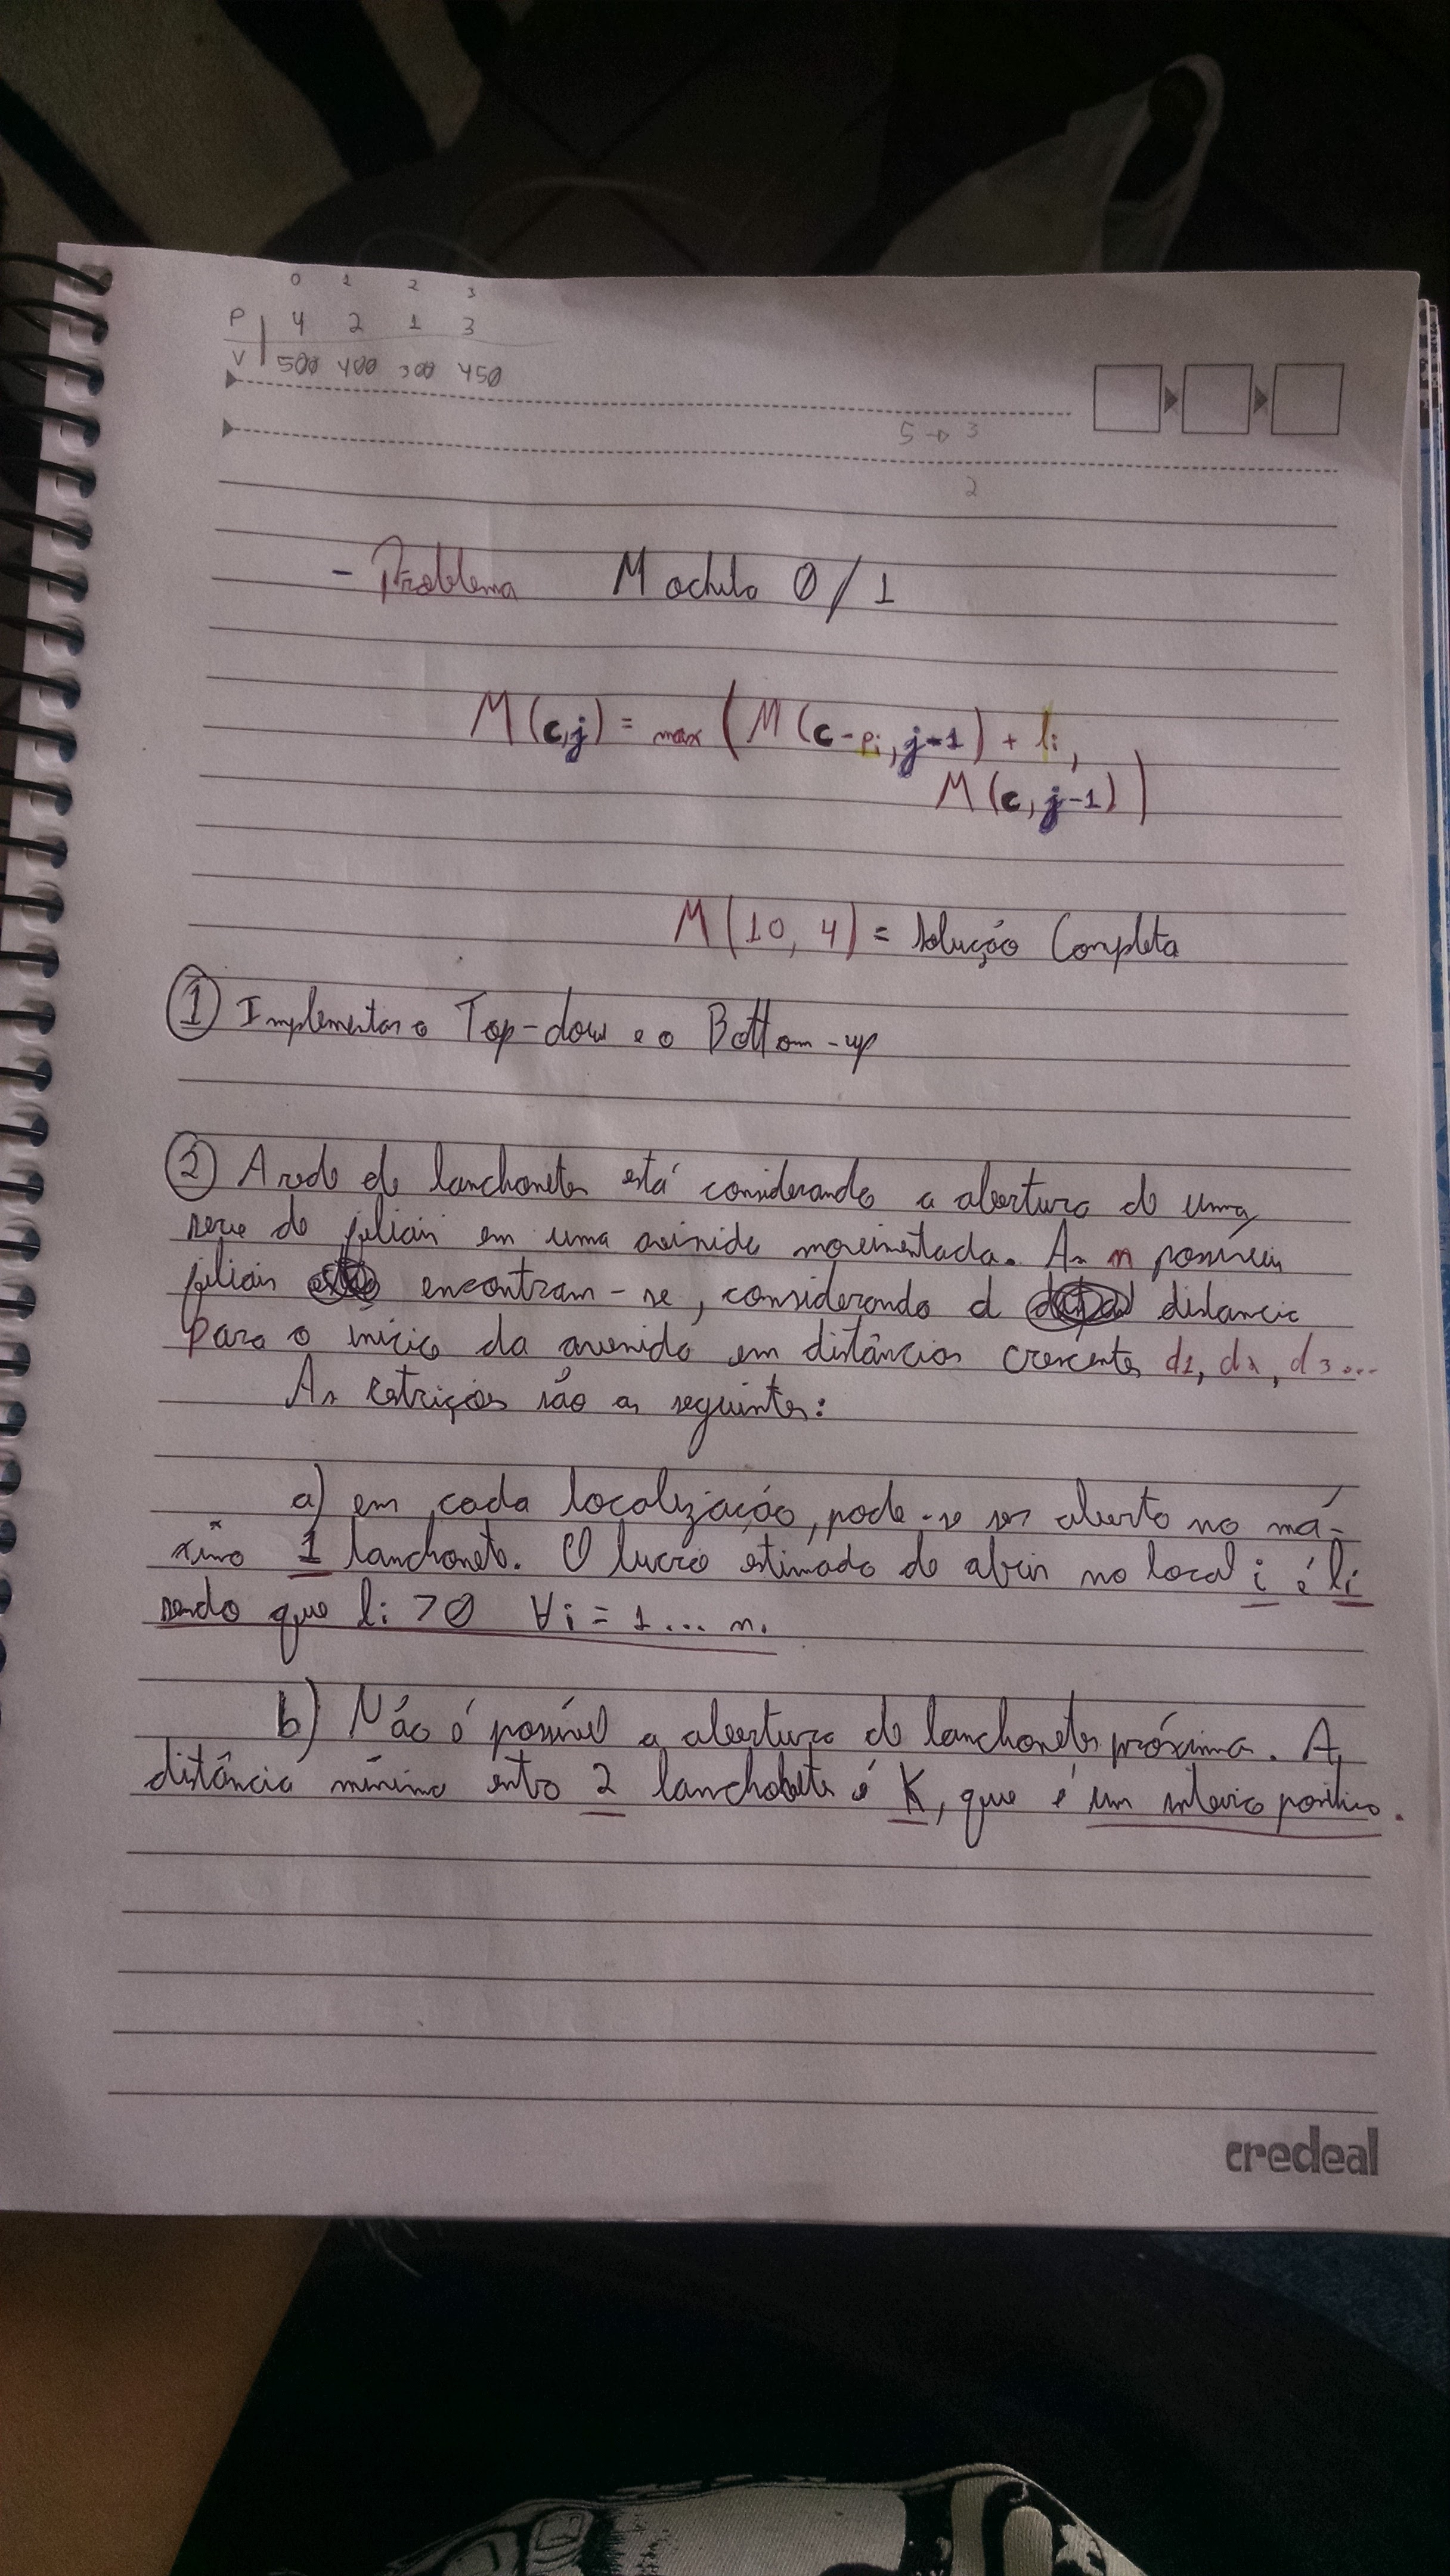 0 1 2 3
P 4 2 1 3
V 500 400 300 450
5 → 3
2
- Problema Mochila 0/1
M(c,j) = max (M(c-pi, j-1) + li,
M(c, j-1))
M(10, 4) = Solução Completa
① Implementar o Top-dow e o Bottom-up
② A rede de lanchonetes está considerando a abertura de uma
serie de filiais em uma avinida movimentada. As n possiveis
filiais encontram-se, considerando d distancia
para o início da avenida em distâncias crescentes d1, d2, d3...
As restrições são as seguintes:
a) em cada localização, pode-se ser aberto no má-
ximo 1 lanchonete. O lucro estimado de abrir no local i é li
sendo que li > 0 ∀i = 1... n.
b) Não é possível a abertura de lanchonetes próxima. A
distância mínima entre 2 é K, que é um inteiro positivo.
credeal